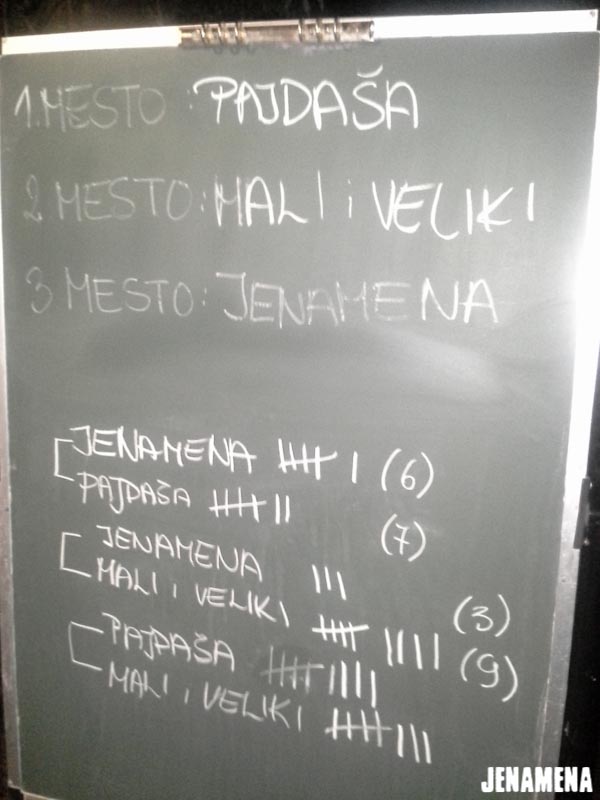 1. MESTO : PAJDAŠA
2 MESTO: MALI i VELIKI
3 MESTO: JENAMENA
JENAMENA |||| | (6)
PAJDAŠA |||| || (7)
JENAMENA ||| (3)
MALI i VELIKI |||| |||| (9)
PAJDAŠA |||| ||||
MALI i VELIKI |||| |||
JENAMENA